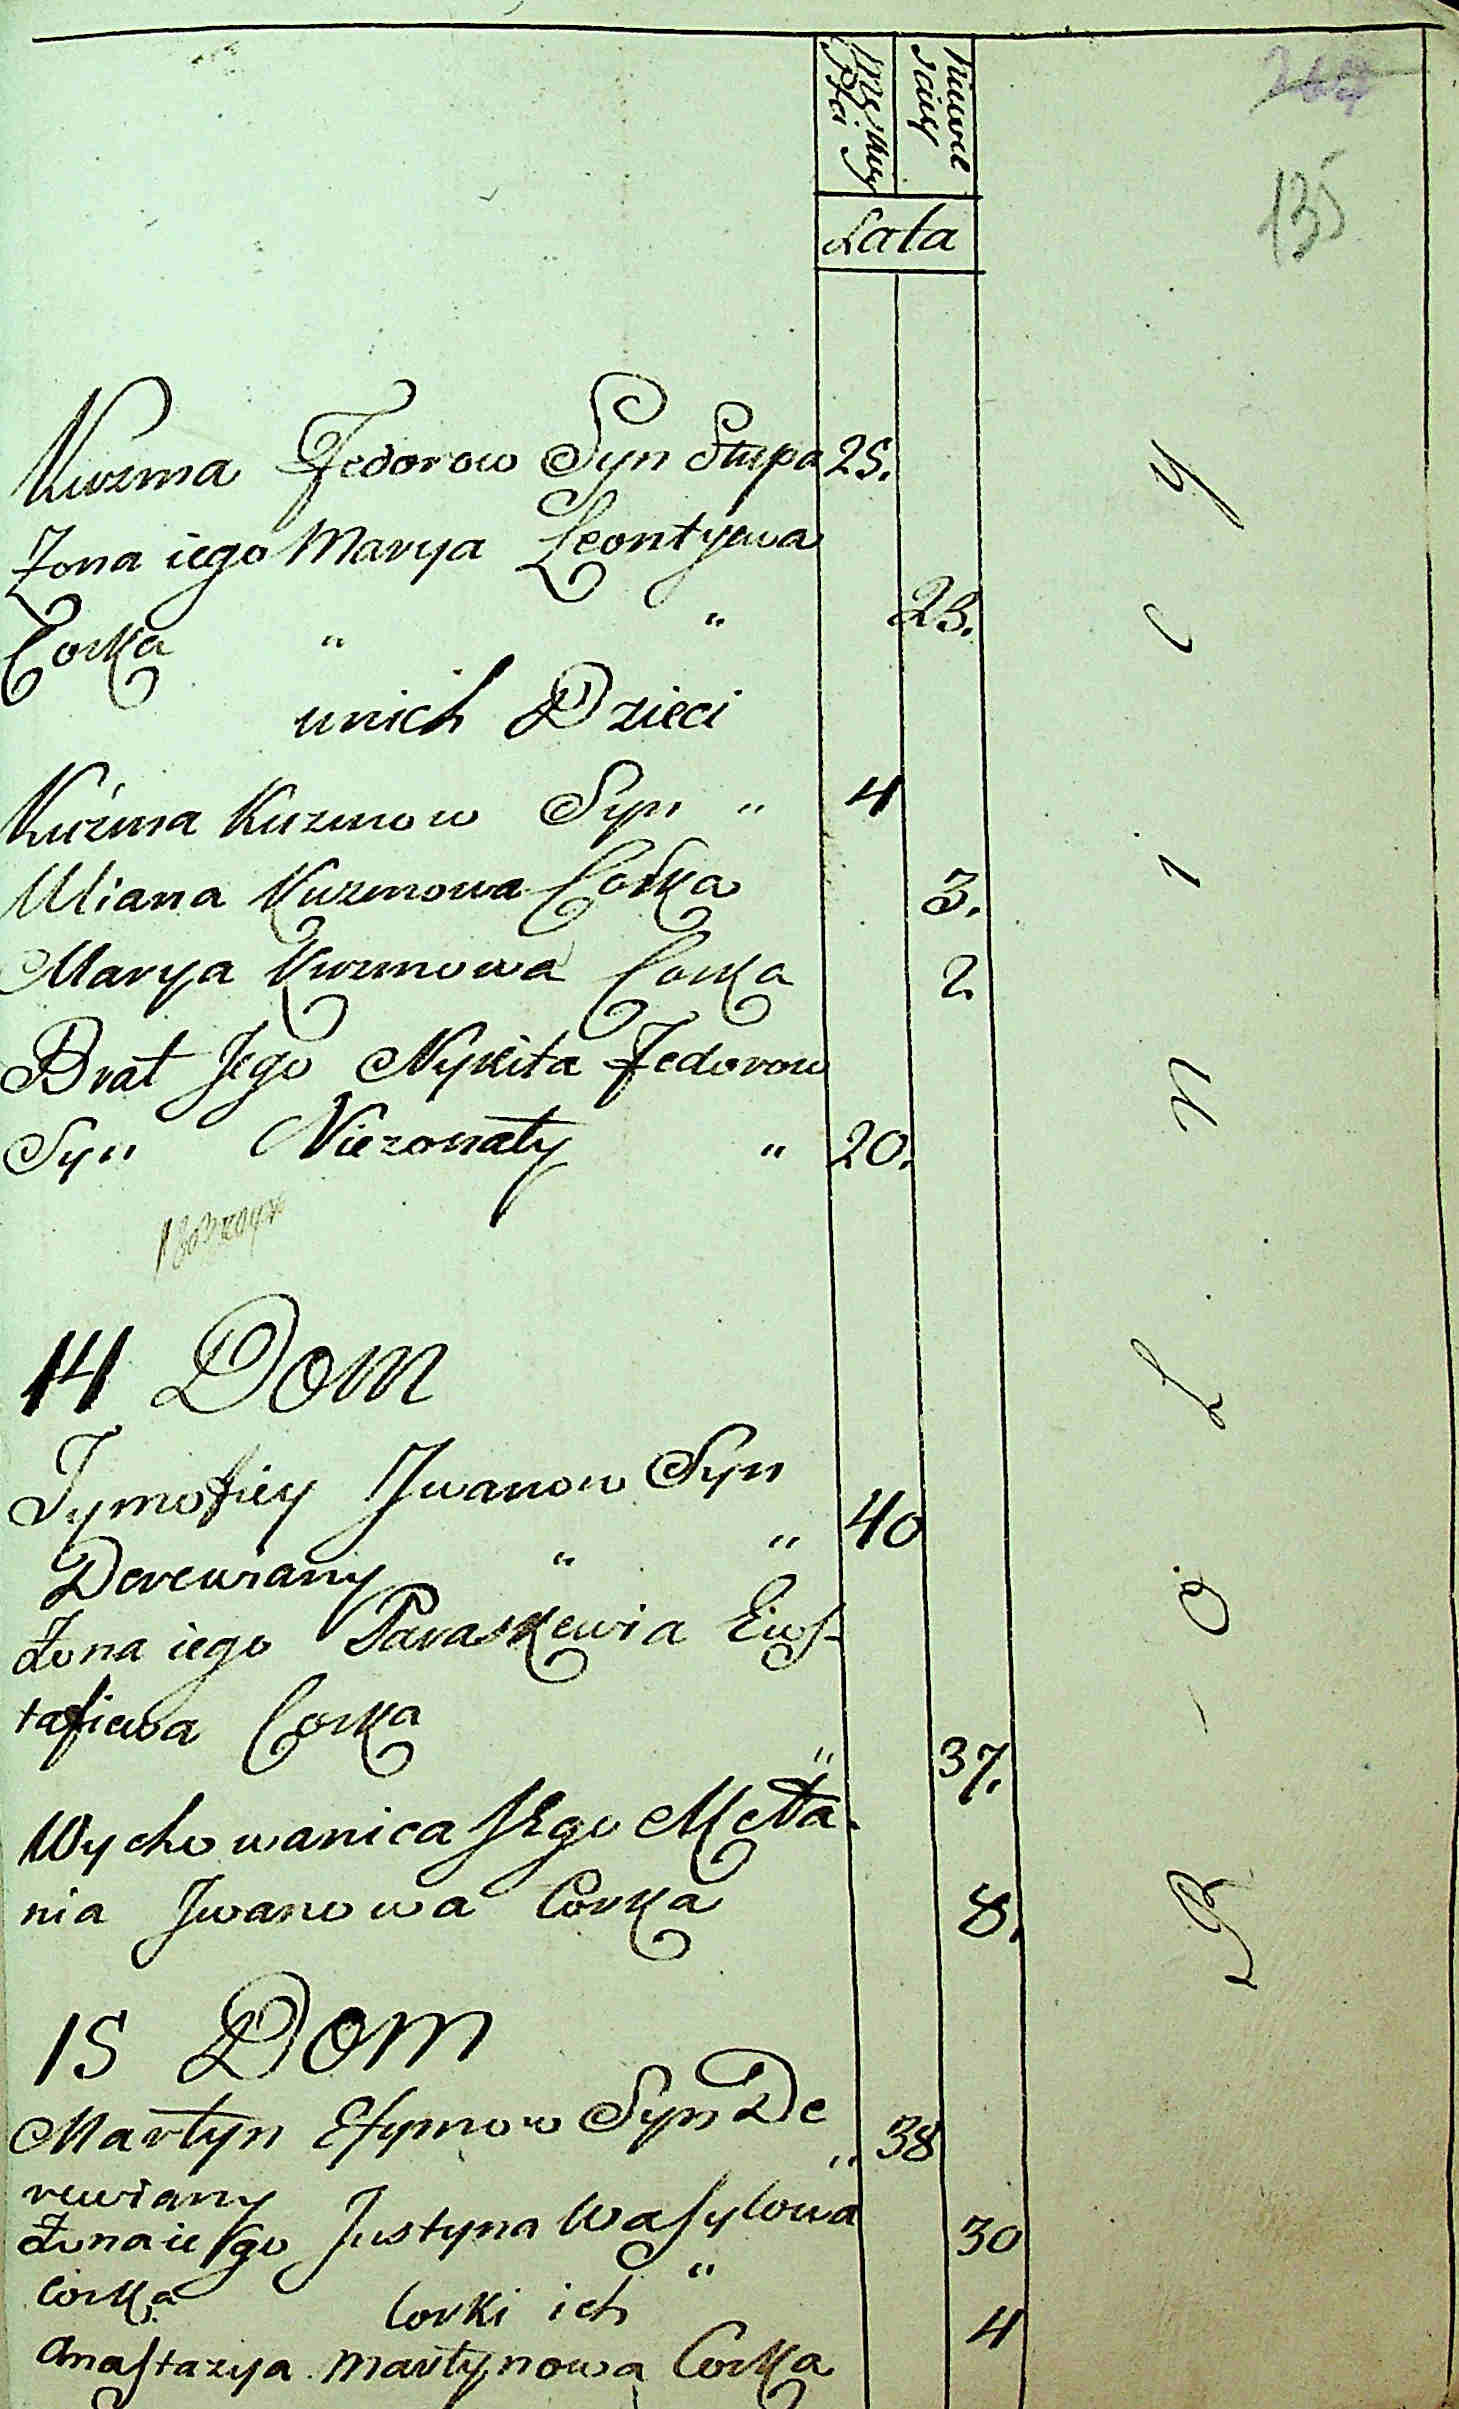 Męskiey Płci
264
135
Lata
Kuzma Fedorow Syn Stupa 25.
Zona iego Marya Leontyewa
Corka " " 23.
unich Dzieci
Kuźma Kuzmow Syn " 4
Uliana Kuzmowa Corka 3.
Marya Kuzmowa Corka 2
Brat Jego Nykita Fedorow
Syn Niezonaty " 20.
14 Dom
Tymofiey Jwanow Syn
Derewiany " " 40
Żona iego Paraskewia Ews-
tafiewa Corka " 37.
Wychowanica Jego Meła-
nia Jwanowa Corka 8.
15 Dom
Martyn Efymow Syn De " 38
rewiany
Żona iego Justyna Wasylowa 30
Corka "
Corki ich
Anastazya Martynowa Corka 4
R - o l n i c y